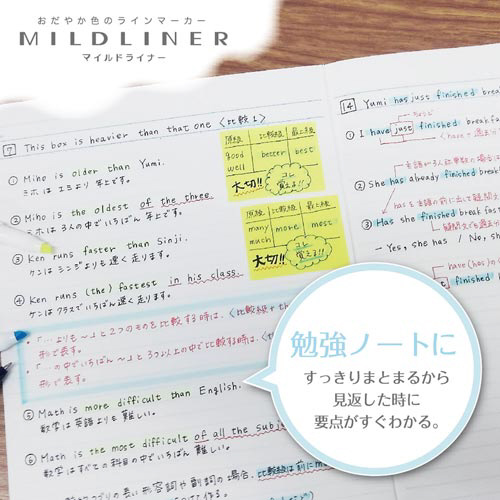 おだやか色のラインマーカー
MILDLINER
マイルドライナー
7 This box is heavier than that one 〈比較1〉
① Miho is older than Yumi.
ミホはユミより年上です。
② Miho is the oldest of the three.
ミホは3人の中でいちばん年上です。
③ Ken runs faster than Sinji.
ケンはシンジよりも速く走ります。
④ Ken runs (the) fastest in his class.
ケンはクラスでいちばん速く走ります。
・「…よりも～」と2つのものを比較する時は、〈比較級+th
形で表す。
・「…の中でいちばん～」と3つ以上の中で比較する時は、〈th
形で表す。
⑤ Math is more difficult than English.
数学は英語よりも難しい。
⑥ Math is the most difficult of all the subj
数学はすべての科目の中でいちばん難しい。
つづりの長い形容詞や副詞の場合、比較級は前にm
原級 比較級 最上級
good
well
better best
大切!!
コレ
覚える!!
原級 比較級 最上級
many
much
more most
大切!!
コレ
覚える!!
14 Yumi has just finished breakf
① I have just finished breakf
② She has already finished break
③ Has she finished break
→ Yes, she has / No, s
finished
勉強ノートに
すっきりまとまるから
見返した時に
要点がすぐわかる。